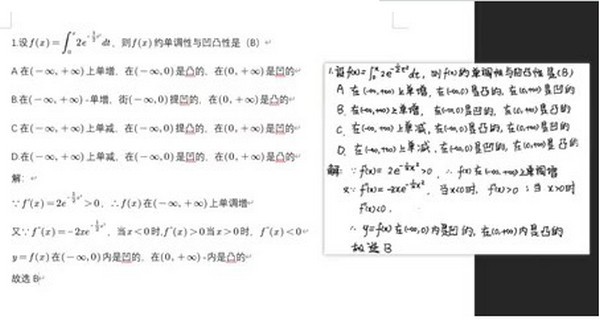 1.设 f(x)=∫₀ˣ 2e^{-½t²}dt，则f(x)约单调性与凹凸性是（B）
A 在(-∞,+∞)上单增，在(-∞,0)是凸的，在(0,+∞)是凹的
B.在(-∞,+∞)-单增，街(-∞,0)提凹的，在(0,+∞)是凸的
C 在(-∞,+∞)上单减，在(-∞,0)提凸的，在(0,+∞)是凹的
D.在(-∞,+∞)上单减，在(-∞,0)是凹的，在(0,+∞)是凸的
解：
∵f'(x)=2e^{-½x²}>0，∴f(x)在(-∞,+∞)上单调增
又∵f''(x)=-2xe^{-½x²}，当x<0时,f''(x)>0当x>0时，f''(x)<0
y=f(x)在(-∞,0)内是凹的，在(0,+∞)-内是凸的
故选 B
1.设f(x)=∫₀ˣ2e^{-½t²}dt，则f(x)的单调性与凹凸性是(B)
A. 在(-∞,+∞)上单增，在(-∞,0)是凸的，在(0,+∞)是凹的
B. 在(-∞,+∞)上单增，在(-∞,0)是凹的，在(0,+∞)是凸的
C. 在(-∞,+∞)上单减，在(-∞,0)是凸的，在(0,+∞)是凹的
D. 在(-∞,+∞)上单减，在(-∞,0)是凹的，在(0,+∞)是凸的
解：∵f'(x)=2e^{-½x²}>0，∴f(x)在(-∞,+∞)上单调增
又∵f''(x)=-2xe^{-½x²}，当x<0时，f''(x)>0；当x>0时
f''(x)<0.
∴y=f(x)在(-∞,0)内是凹的，在(0,+∞)内是凸的
故选B